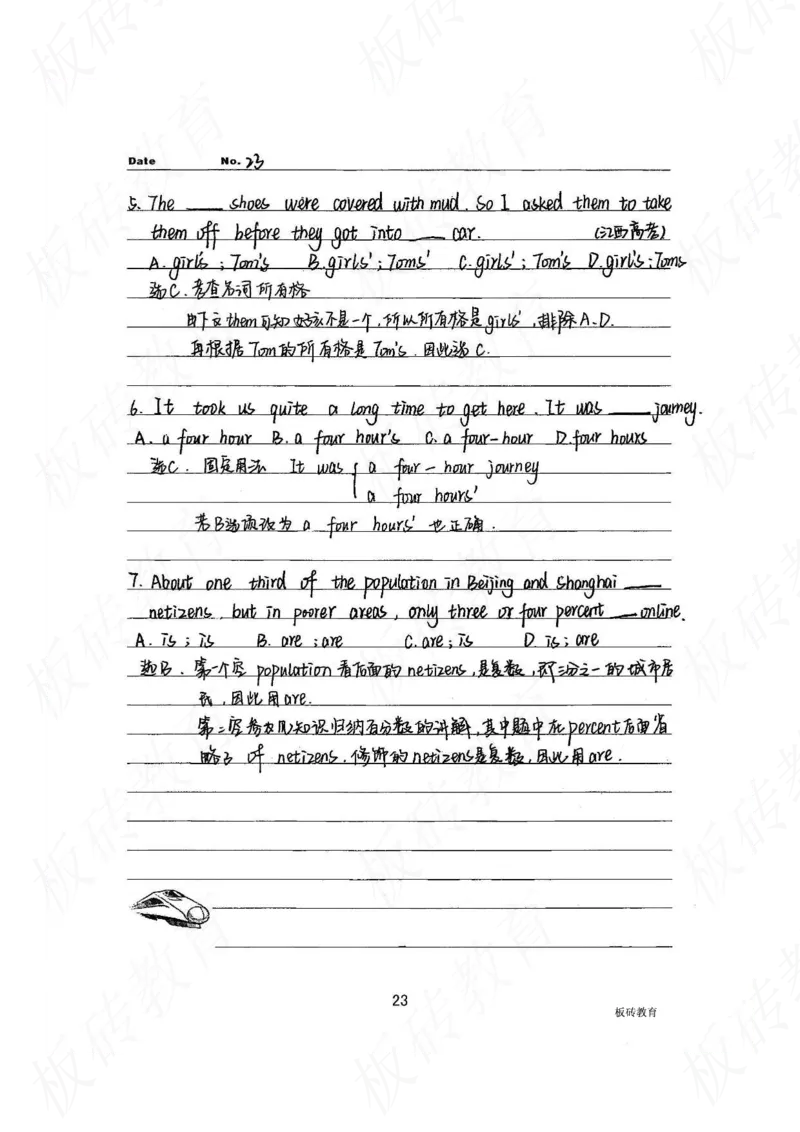 Date No. 23
5. The ____ shoes were covered with mud. So I asked them to take
them off before they got into ____ car. (江西高考)
A. girl's ; Tom's B. girls' ; Toms' C. girls' ; Tom's D. girl's ; Toms
选C. 考查名词所有格
由下文them可知 女孩不是一个, 所以所有格是girls', 排除A、D.
再根据Tom的所有格是Tom's. 因此选C.
6. It took us quite a long time to get here. It was ____ journey.
A. a four hour B. a four hour's C. a four-hour D. four hours
选C. 固定用法 It was { a four-hour journey
a four hours'
若B选项改为a four hours' 也正确.
7. About one third of the population in Beijing and Shanghai ____
netizens, but in poorer areas, only three or four percent ____ online.
A. is ; is B. are ; are C. are ; is D. is ; are
选B. 第一个空population看后面的netizens, 是复数, 即三分之一的城市居
民, 因此用are.
第二空参考知识归纳百分数的讲解, 其中题中在percent后面省
略了of netizens, 修饰的netizens是复数, 因此用are.
23
板砖教育